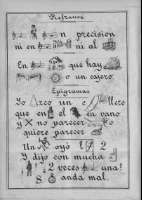 Refranes
n precision
ni en ni al
En que hay
o un cajero.
Epigramas
Yo creo un llero
que en el en vano
y no parecer
quiere parecer
Un oyó 1 2
Y dijo con mucha
2 veces una!
8 anda mal.